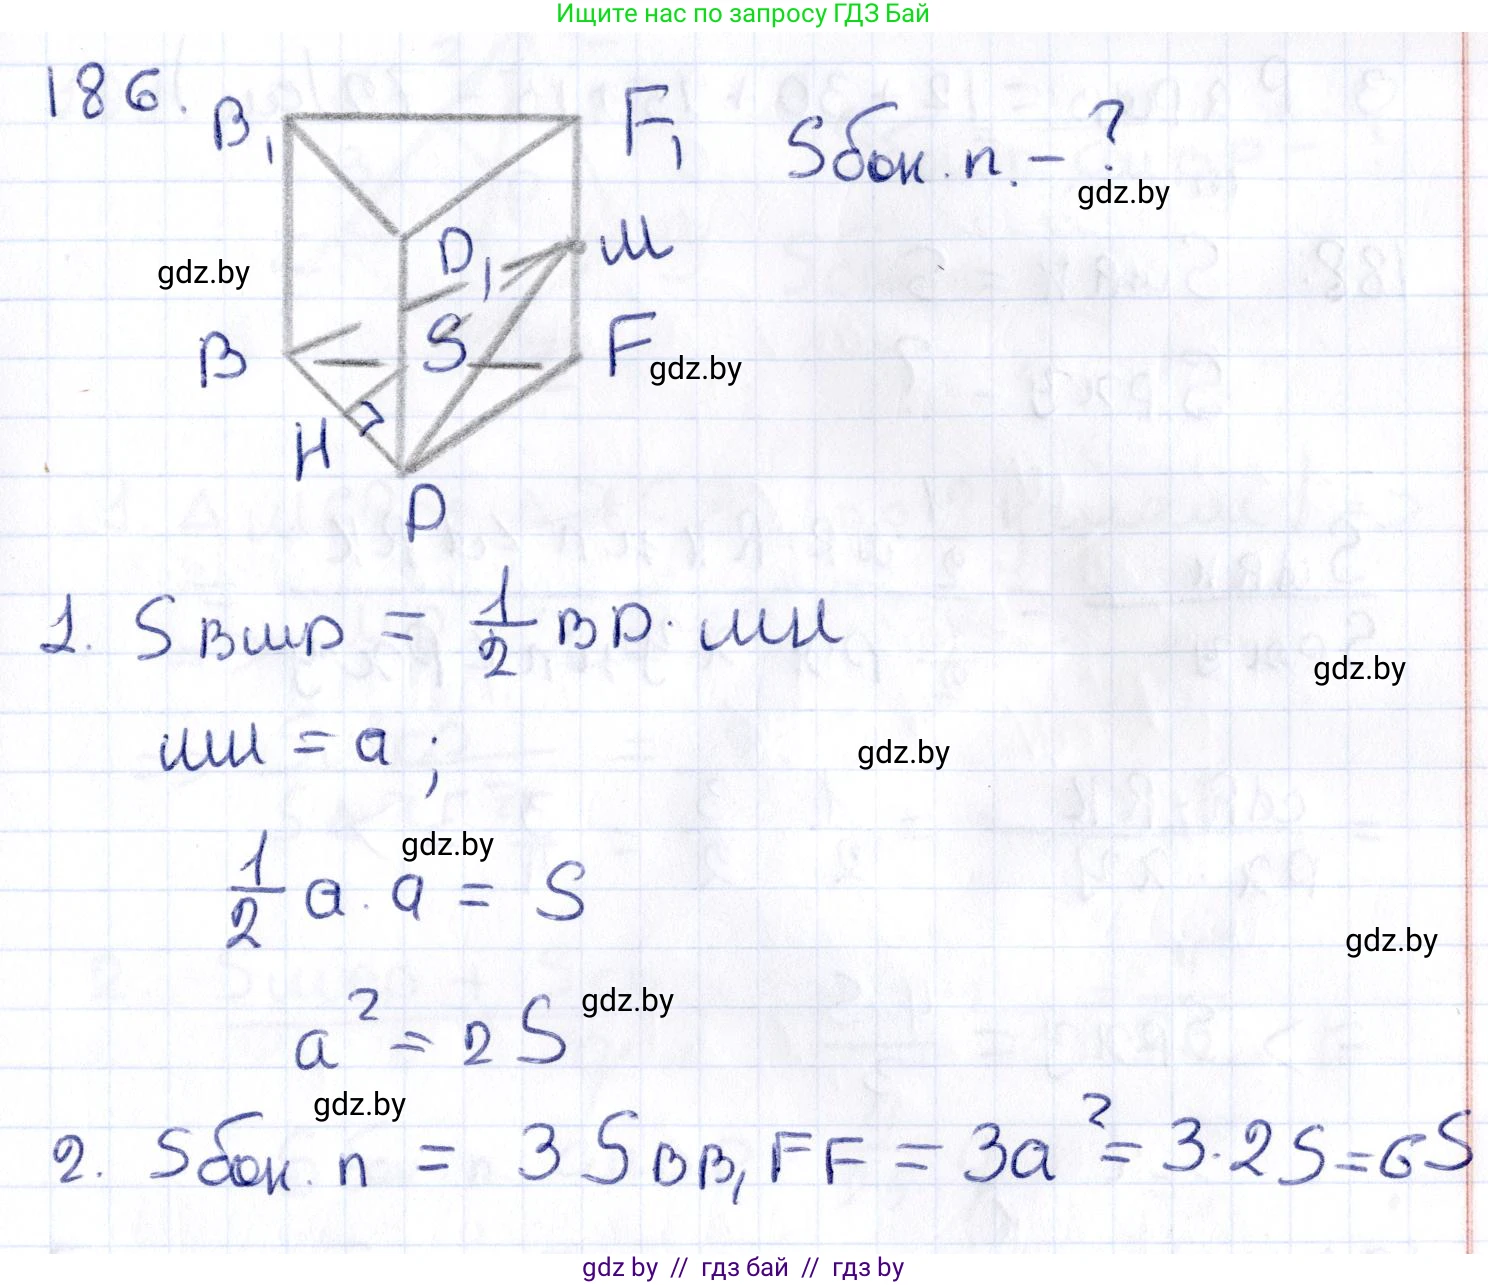 Ищите нас по запросу ГДЗ Бай
186.
B₁
F₁
Sбок.п. - ?
gdz.by
D₁
M
gdz.by
B
S
F
gdz.by
H
D
1. S BMD = 1/2 BD · MH
gdz.by
MH = a ;
gdz.by
gdz.by
1/2 a · a = S
gdz.by
a² = 2S
gdz.by
gdz.by
2. Sбок.п = 3 S BB₁FF = 3a² = 3·2S = 6S
gdz.by // гдз бай // гдз by